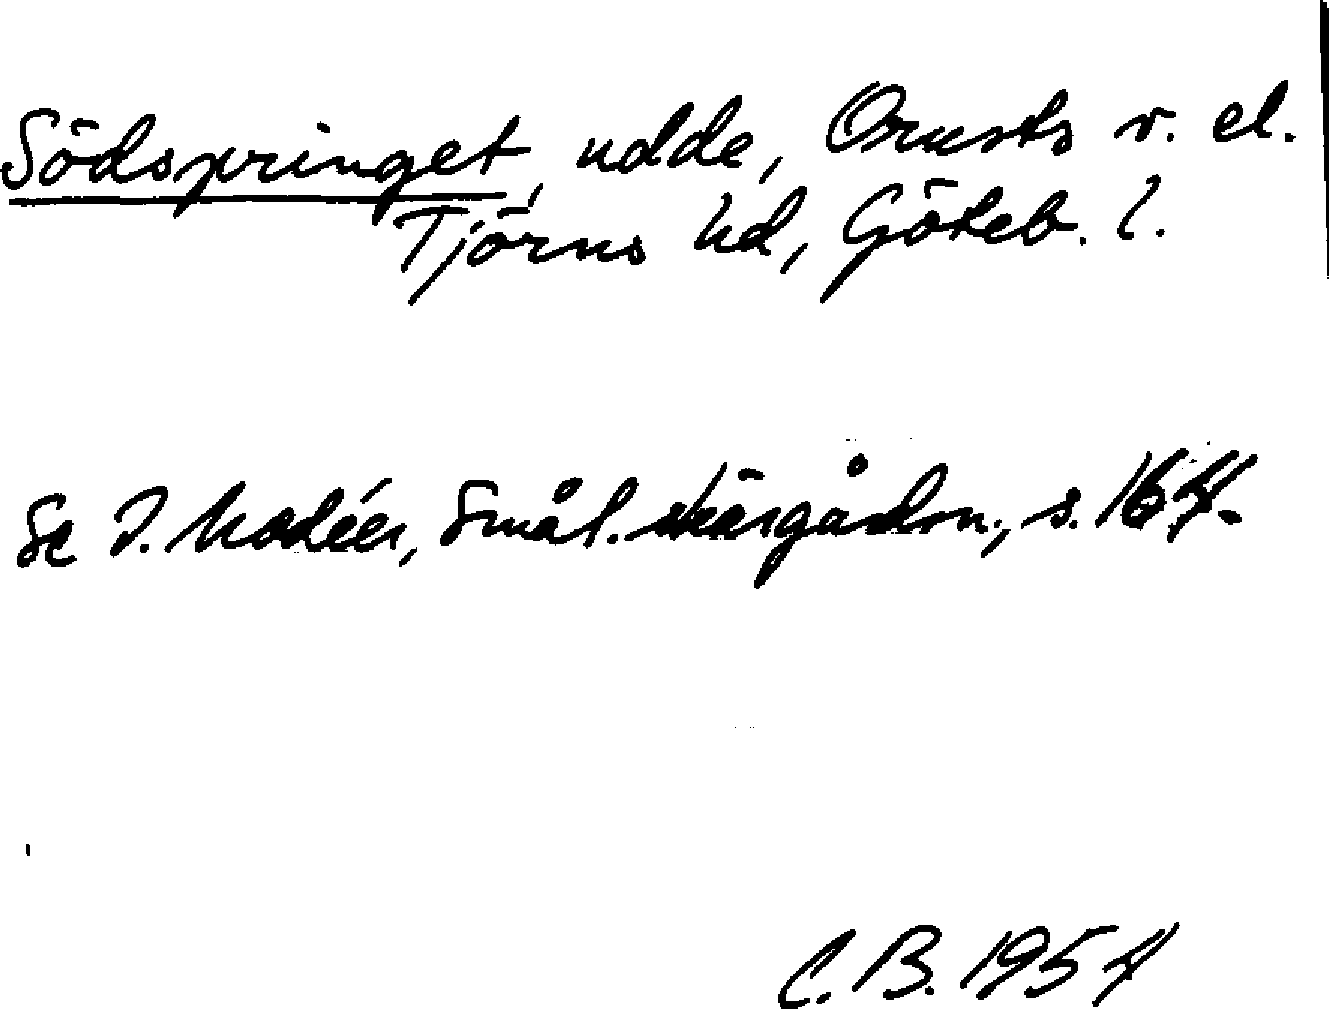 Södspringet, udde, Orusts v. el.
Tjörns hd, Göteb. l.
Se I. Modéer, Smål. skärgårdsn., s. 167.
C. B. 1957